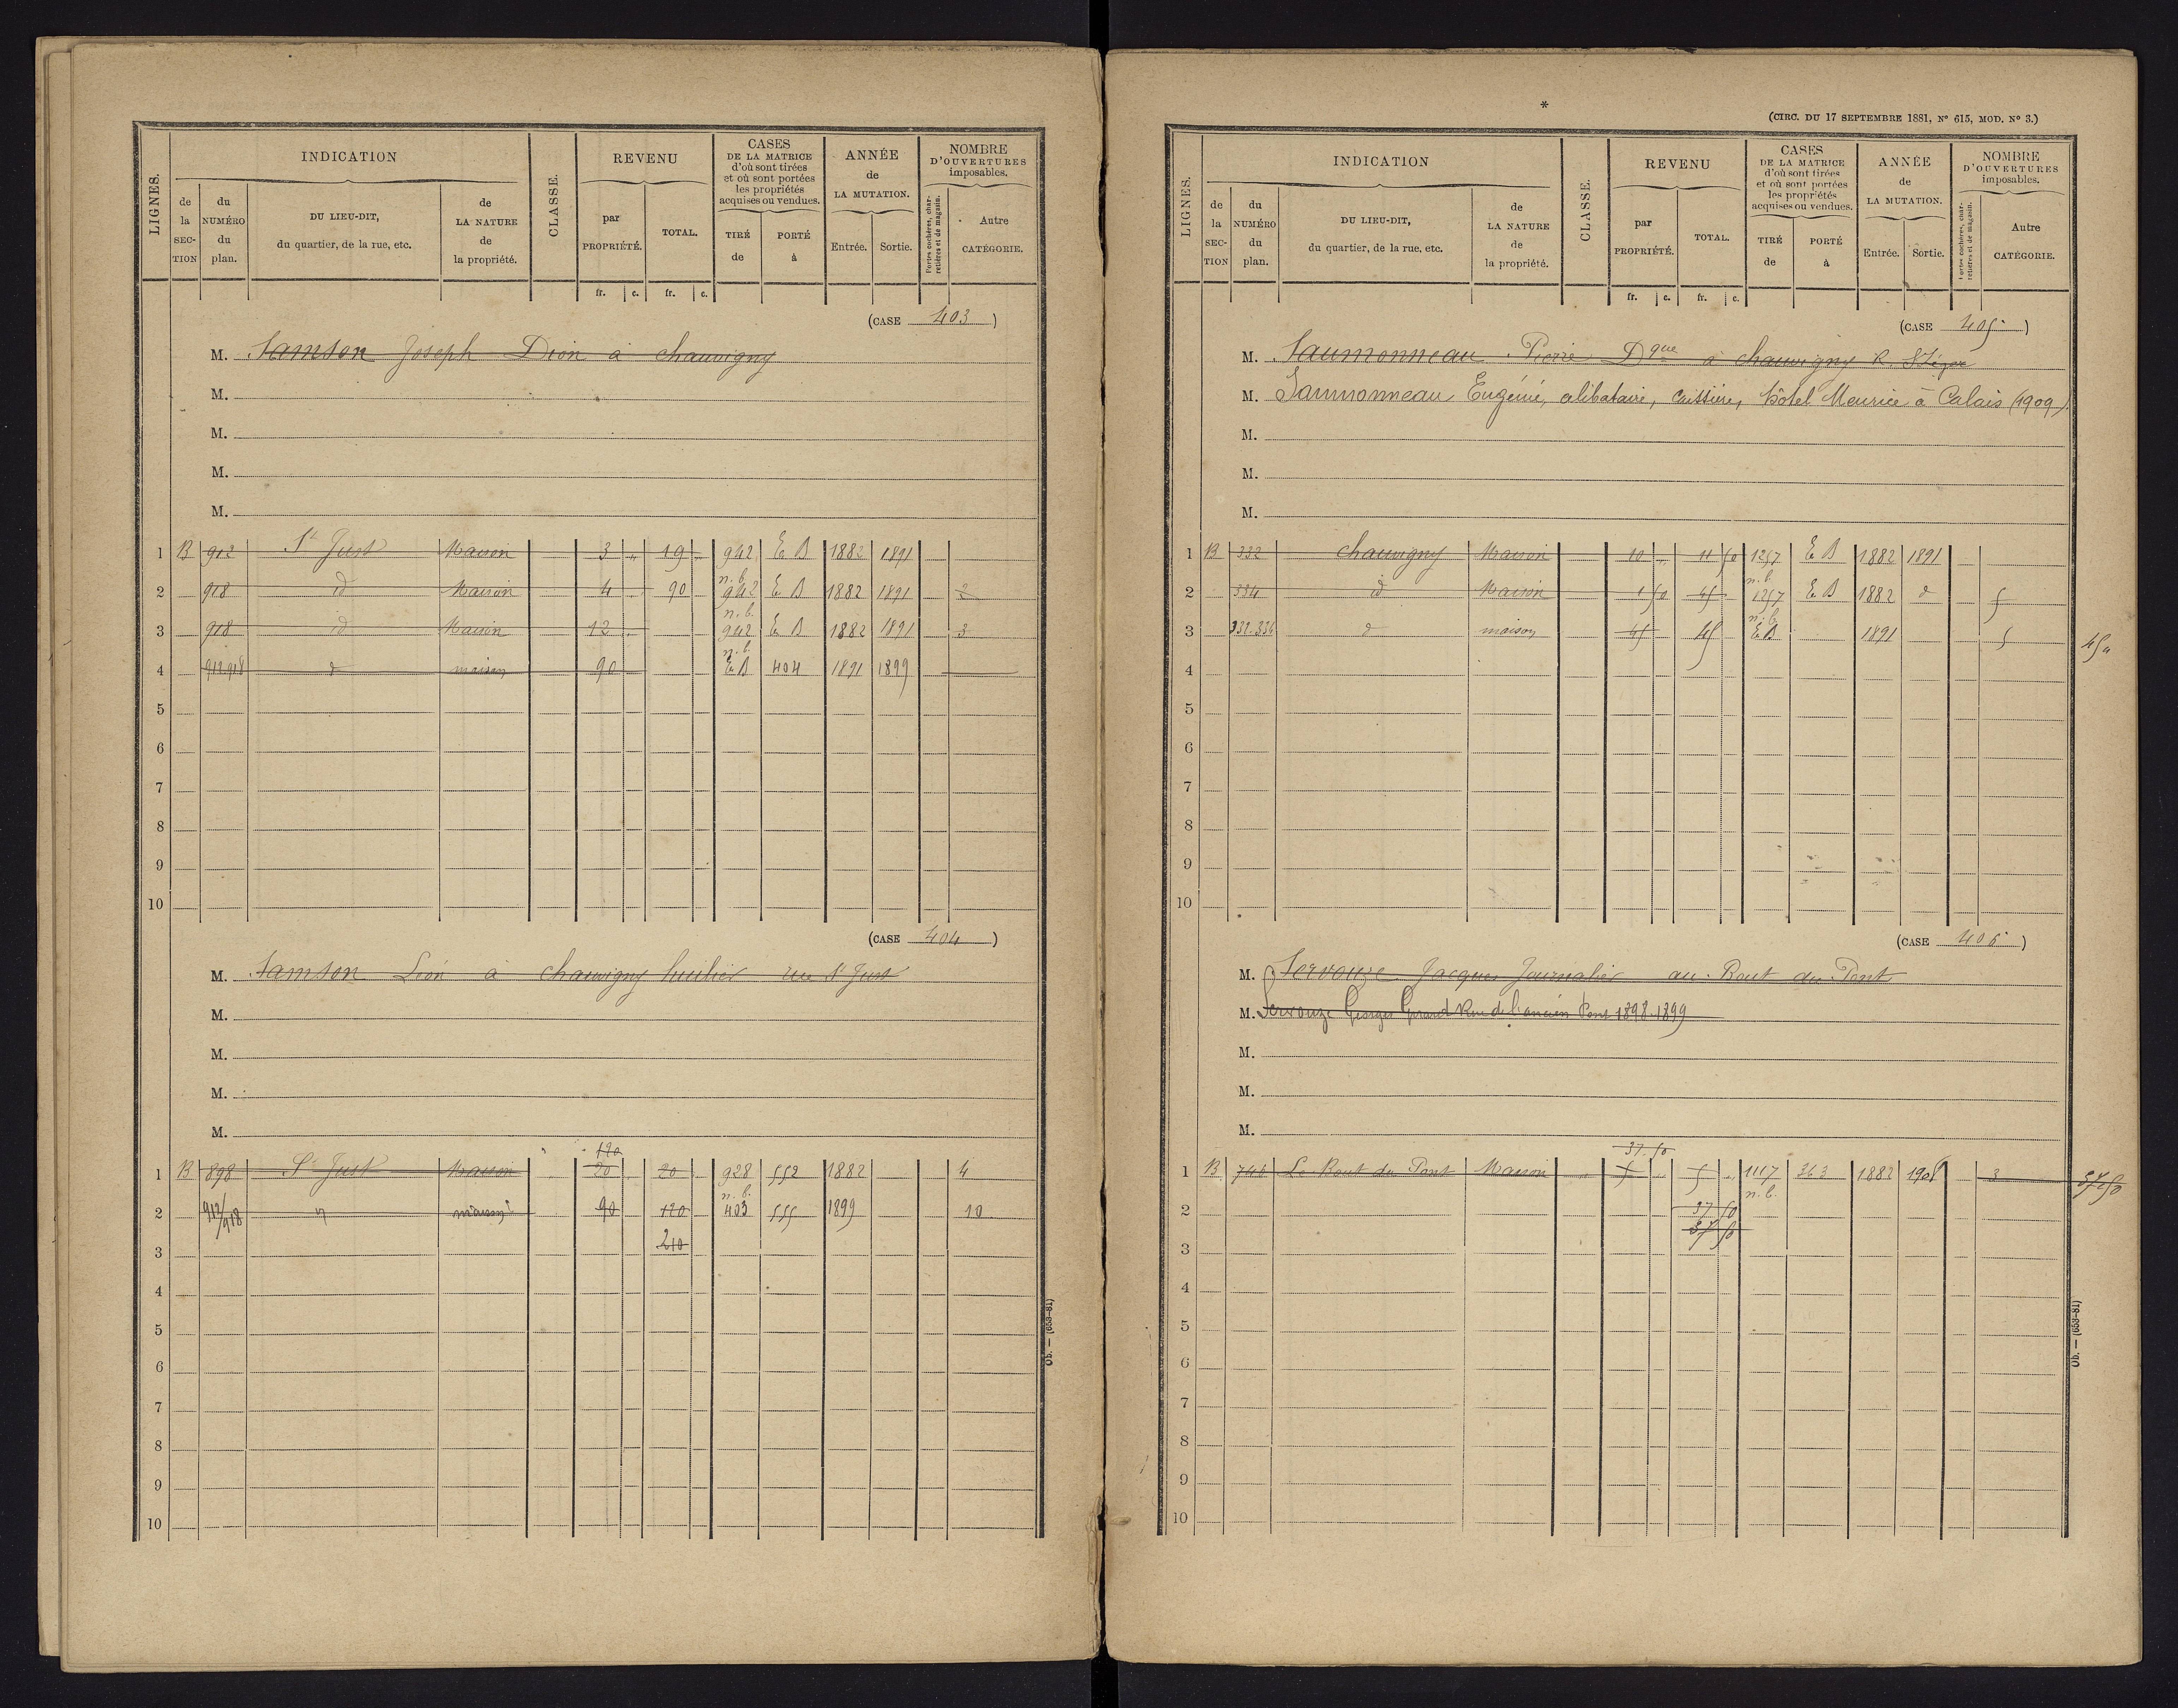 LIGNES.
INDICATION
de la SECTION
du NUMÉRO du plan.
DU LIEU-DIT, du quartier, de la rue, etc.
de LA NATURE de la propriété.
CLASSE.
REVENU
par PROPRIÉTÉ.
TOTAL.
CASES DE LA MATRICE d'où sont tirées et où sont portées les propriétés acquises ou vendues.
TIRÉ de
PORTÉ à
ANNÉE de LA MUTATION.
Entrée.
Sortie.
NOMBRE D'OUVERTURES imposables.
Portes cochères, charretières et de magasin.
Autre CATÉGORIE.
fr. c. fr. c.
(CASE 403)
M. Samson Joseph Dion à chauvigny
M.
M.
M.
M.
1 B 912 St Just Maison 3 " 19 942 E B 1882 1891
n. b.
2 918 id Maison 4 90 942 E B 1882 1891 2
n. b.
3 918 id Maison 12 942 E B 1882 1891 3
n. b.
4 912.918 d maison 90 E B 404 1891 1899
5
6
7
8
9
10
(CASE 404)
M. Samson Léon à chauvigny huilier rue St Just
M.
M.
M.
M.
120
1 B 898 St Just Maison 20 20 928 552 1882 4
n. b.
2 912/918 maison 90 120 403 555 1899 10
3 210
4
5
6
7
8
9
10
Ob. — (653-81)
*
(CIRC. DU 17 SEPTEMBRE 1881, N° 615, MOD. N° 3.)
LIGNES.
INDICATION
de la SECTION
du NUMÉRO du plan.
DU LIEU-DIT, du quartier, de la rue, etc.
de LA NATURE de la propriété.
CLASSE.
REVENU
par PROPRIÉTÉ.
TOTAL.
CASES DE LA MATRICE d'où sont tirées et où sont portées les propriétés acquises ou vendues.
TIRÉ de
PORTÉ à
ANNÉE de LA MUTATION.
Entrée.
Sortie.
NOMBRE D'OUVERTURES imposables.
Portes cochères, charretières et de magasin.
Autre CATÉGORIE.
fr. c. fr. c.
(CASE 405)
M. Saumonneau Pierre Dque à chauvigny R. St Léger
M. Saumonneau Eugénie, célibataire, caissière, hôtel Meurice à Calais (1909)
M.
M.
M.
1 B 332 chauvigny Maison 10 " 11 50 1257 E B 1882 1891
n. b.
2 334 id Maison 1 50 45 1257 E B 1882 d 5
n. b.
3 332.334 d maison 45 45 E B 1891 5 45 "
4
5
6
7
8
9
10
(CASE 406)
M. Servouze Jacques Journalier au Bout du Pont
M. Servouze Georges Grand Rue de l'ancien Pont 1898-1899
M.
M.
M.
37.50
1 B 746 Le Bout du Pont Maison 5 5 1117 363 1882 1908 3 37 50
n. b.
2 37 50
37 50
3
4
5
6
7
8
9
10
Ob. — (653-81)